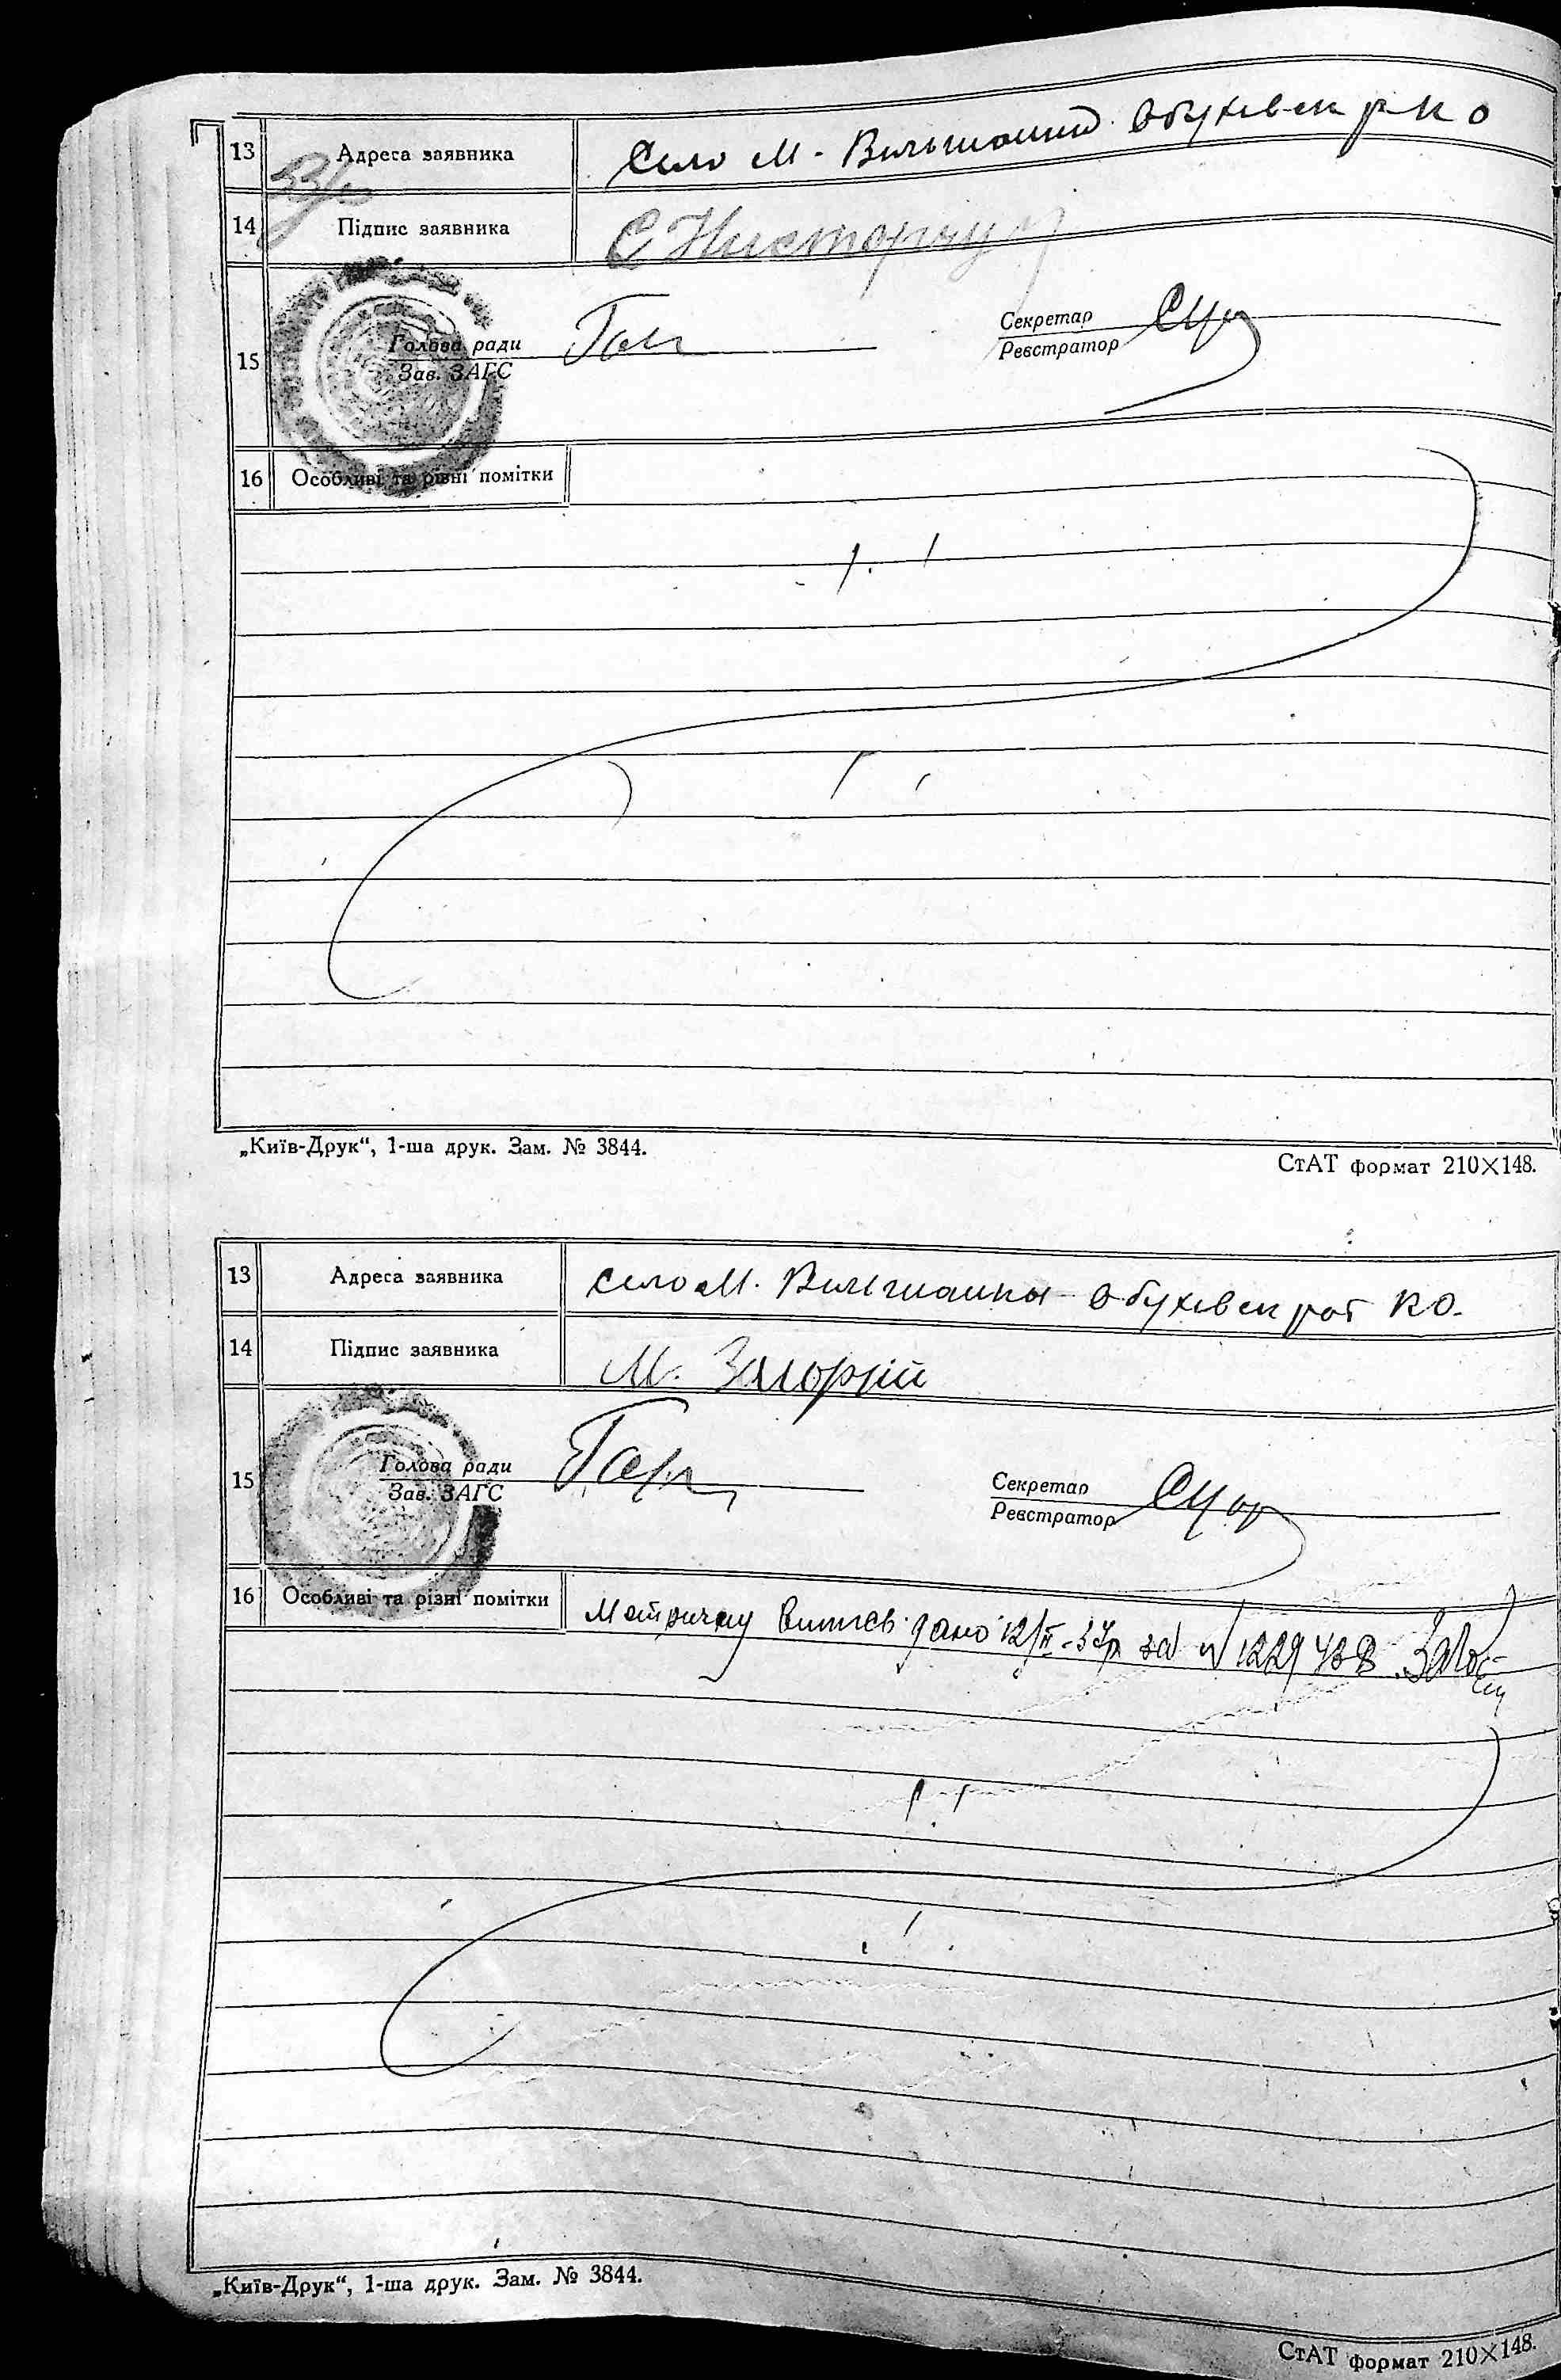 13 Адреса заявника Село М. Вильшанка Обухівськ р К О
14 Підпис заявника Є Нисторчук
15 Голова ради
Зав. ЗАГС
Секретар
Реєстратор
16 Особливі та різні помітки
„Київ-Друк“, 1-ша друк. Зам. № 3844.
СтАТ формат 210×148.
13 Адреса заявника село М. Вильшанка Обухівськ рай КО.
14 Підпис заявника М. Загорій
15 Голова ради
Зав. ЗАГС
Секретар
Реєстратор
16 Особливі та різні помітки дано 12/ІІ-37р за №
„Київ-Друк“, 1-ша друк. Зам. № 3844.
СтАТ формат 210×148.